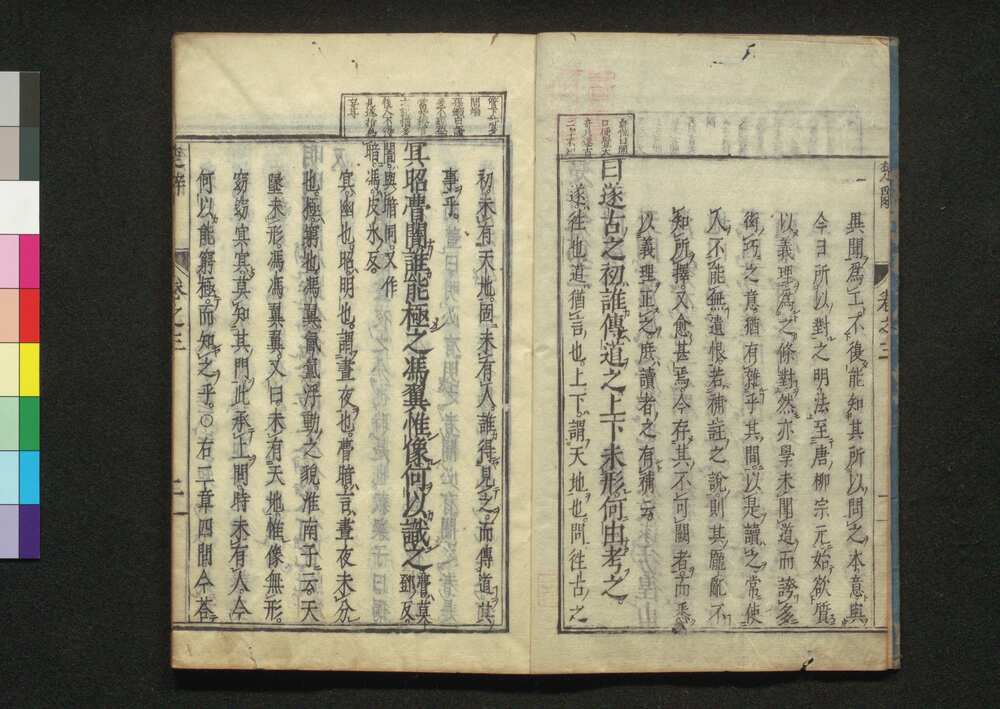 異聞爲工不復能知其所以問之本意與
今日所以對之明法至唐柳宗元始欲質
以義理爲之條對然亦學未聞道而誇多
衒巧之意猶有雜乎其間以是讀之常使
人不能無遺恨若補註之說則其厖亂不
知所擇又愈甚焉今存其不可闕者而悉
以義理正之庶讀者之有補云
曰遂古之初誰傳道之上下未形何由考之
遂往也道猶言也上下謂天地也問往古之
初未有天地固未有人誰得見之而傳道其
事乎
冥昭瞢闇誰能極之馮翼惟像何以識之瞢莫鄧反
闇與暗同又作
暗馮皮冰反
冥幽也昭明也謂晝夜也瞢暗言晝夜未分
也極窮也馮翼氤氳浮動之貌淮南子云天
墬未形馮馮翼翼又曰未有天地惟像無形
窈窈冥冥莫知其門此承上問時未有人今
何以能窮極而知之乎○右二章四問今荅
楚辭
卷之三
二